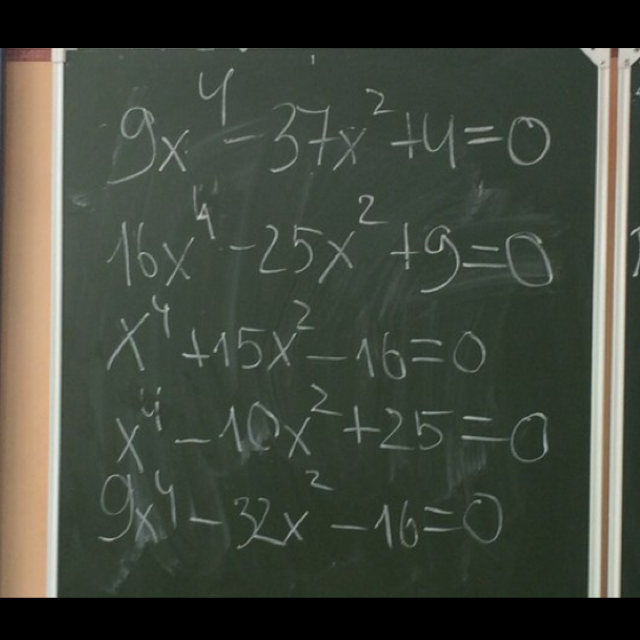 9x⁴ - 37x² + 4 = 0
16x⁴ - 25x² + 9 = 0
x⁴ + 15x² - 16 = 0
x⁴ - 10x² + 25 = 0
9x⁴ - 32x² - 16 = 0